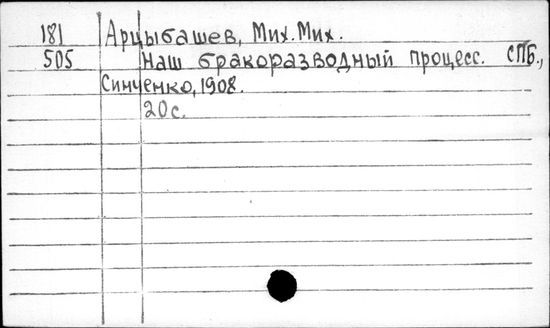 181 Арцыбашев, Мих. Мих.
505 Наш бракоразводный процесс. СПБ.,
Синченко, 1908.
20 с.